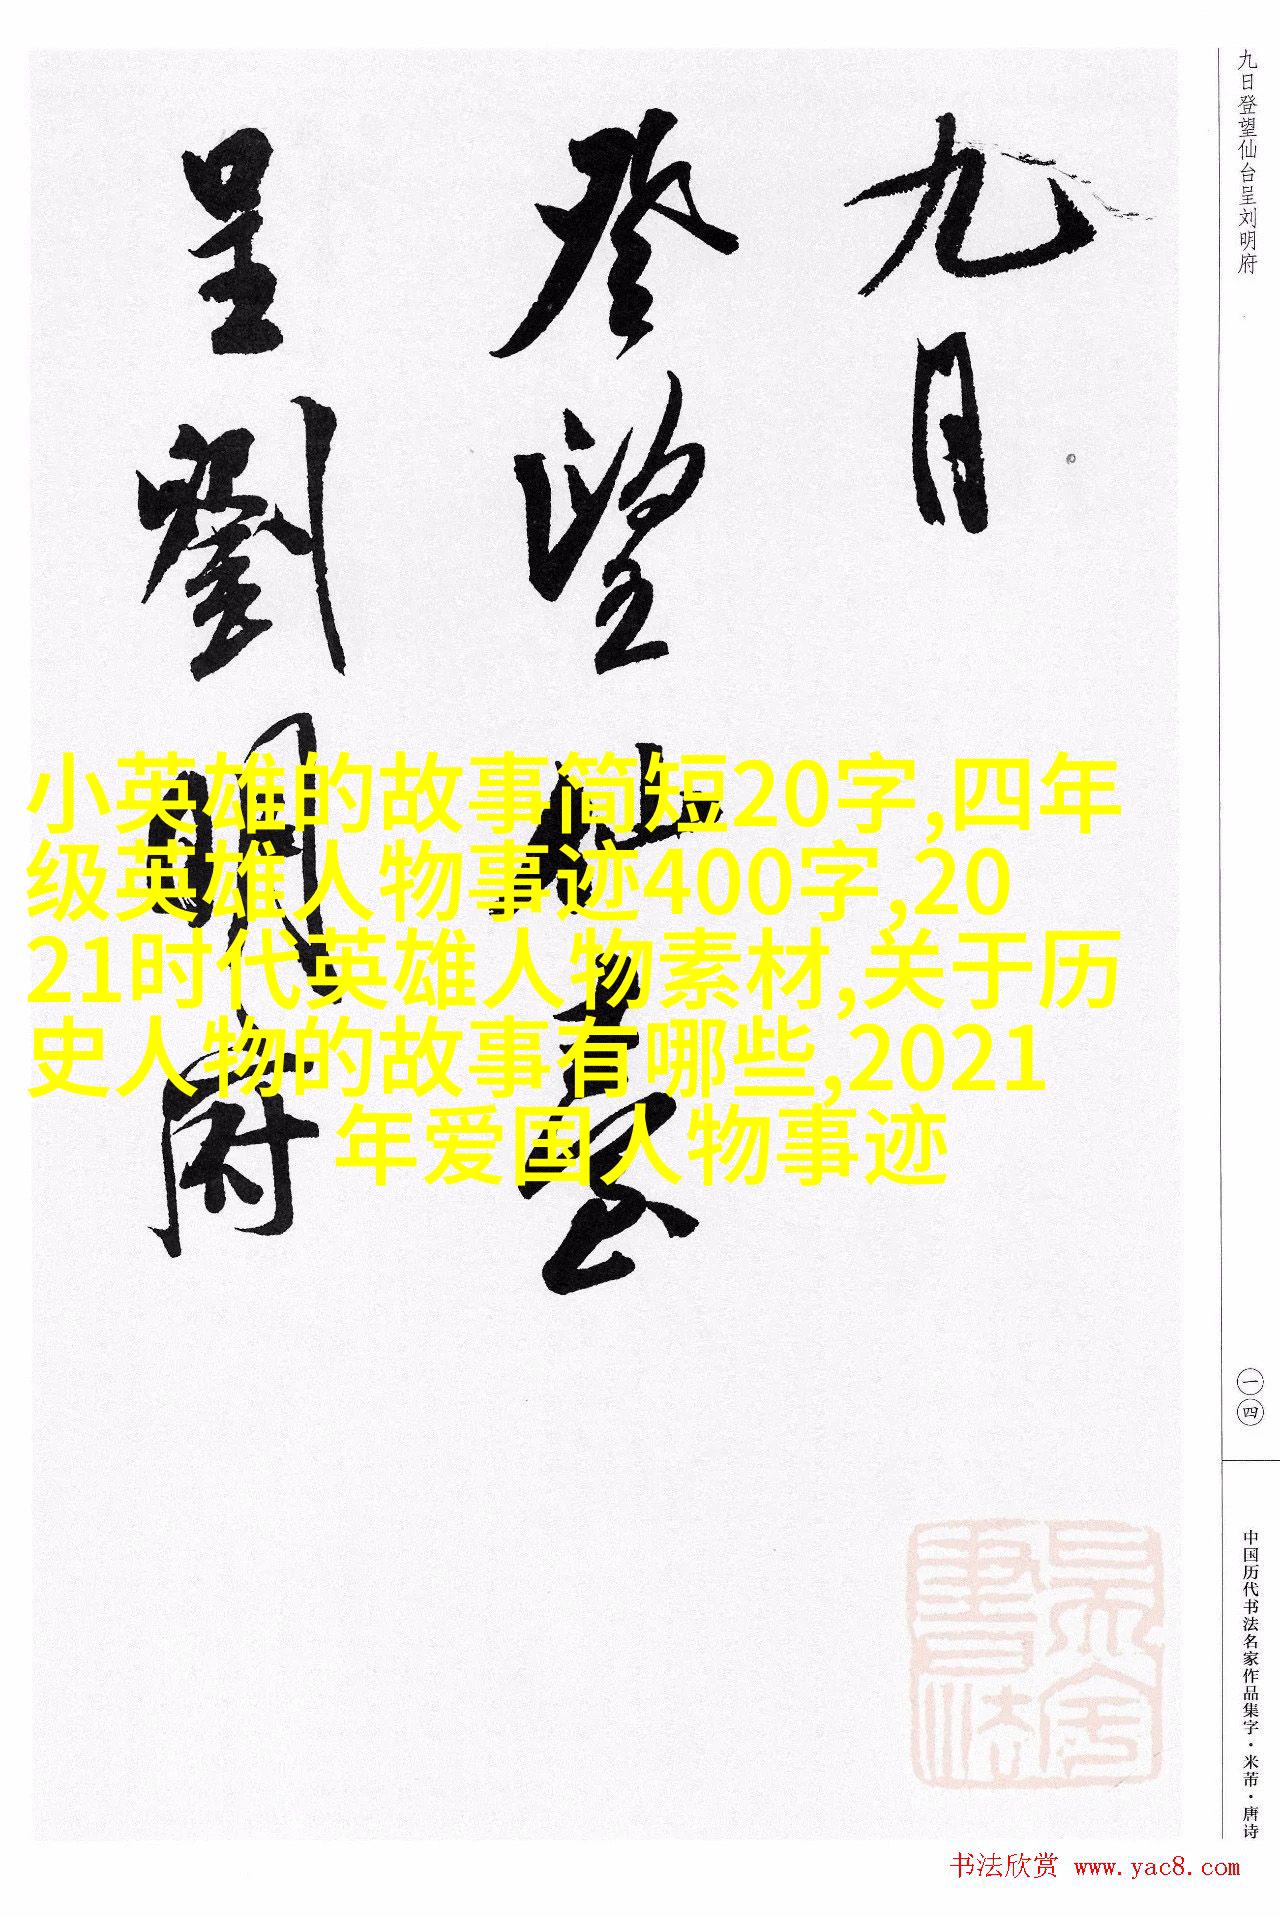 九日
登望仙臺
呈劉明府
小英雄的故事简短20字,四年
级英雄人物事迹400字,20
21时代英雄人物素材,关于历
史人物的故事有哪些,2021
年爱国人物事迹
九日登望仙台呈刘明府
一四
中国历代书法名家作品集字·米芾·唐诗
书法欣赏 www.yac8.com